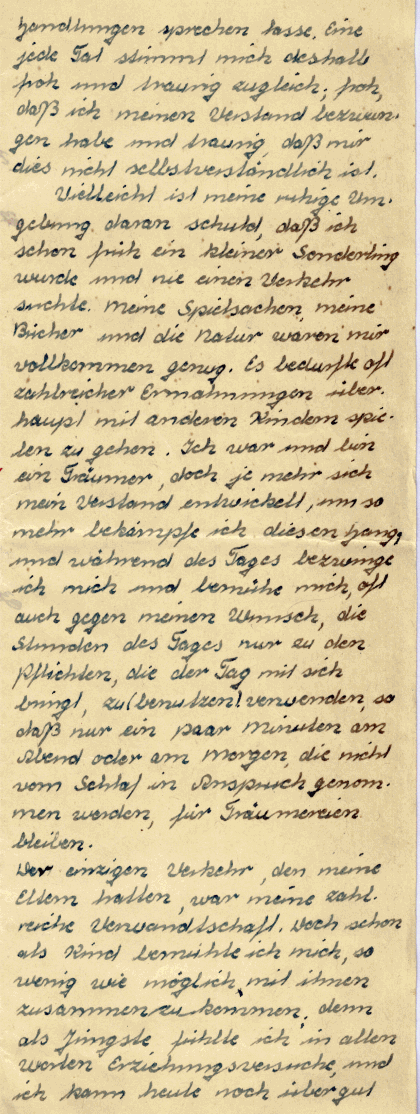 handlungen sprechen lasse. Eine
jede Tat stimmt mich deshalb
froh und traurig zugleich; froh,
daß ich meinen Verstand bezwun-
gen habe und traurig, daß mir
dies nicht selbstverständlich ist.
Vielleicht ist meine ruhige Um-
gebung daran schuld, daß ich
schon früh ein kleiner Sonderling
wurde und nie einen Verkehr
suchte. Meine Spielsachen, meine
Bücher und die Natur waren mir
vollkommen genug. Es bedurfte oft
zahlreicher Ermahnungen über-
haupt mit anderen Kindern spie-
len zu gehen. Ich war und bin
ein Träumer, doch je mehr sich
mein Verstand entwickelt, um so
mehr bekämpfe ich diesen Hang,
und während des Tages bezwinge
ich mich und bemühe mich, oft
auch gegen meinen Wunsch, die
Stunden des Tages nur zu den
Pflichten, die der Tag mit sich
bringt, zu (benutzen) verwenden, so
daß nur ein paar Minuten am
Abend oder am Morgen, die nicht
vom Schlaf in Anspruch genom-
men werden, für Träumereien
bleiben.
Der einzigen Verkehr, den meine
Eltern hatten, war meine zahl-
reiche Verwandtschaft. Doch schon
als Kind bemühte ich mich, so
wenig wie möglich mit ihnen
zusammen zu kommen, denn
als Jüngste fühlte ich in allen
Worten Erziehungsversuche, und
ich kann heute noch über gut